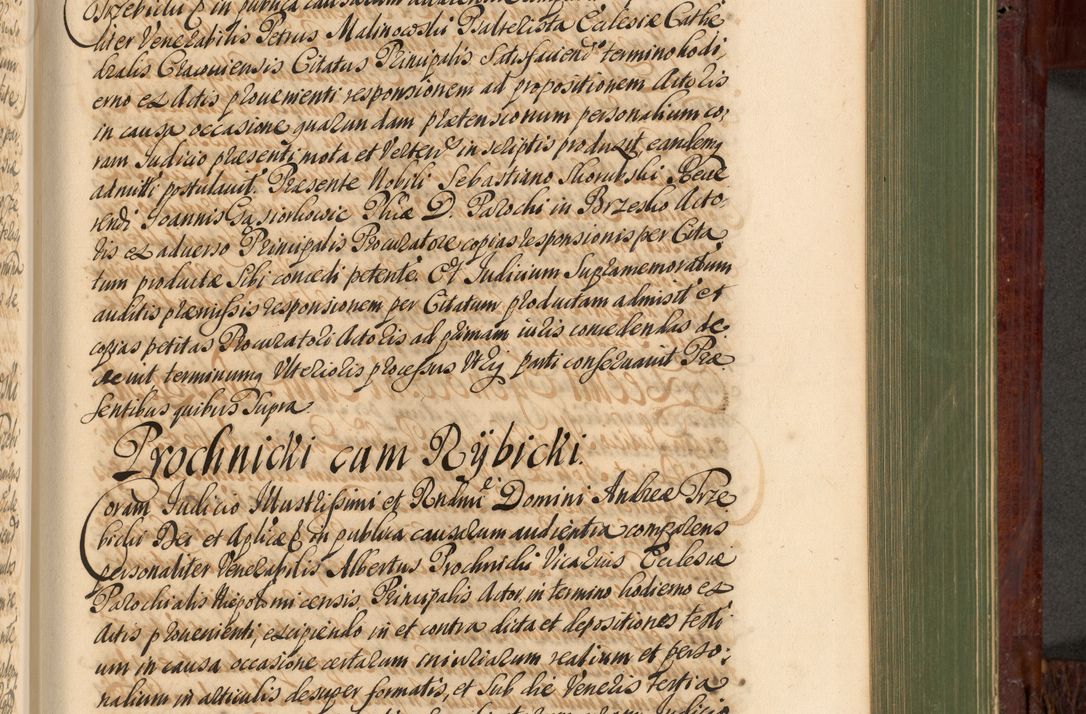 Trzebicki etc in publica causarum audientia
liter Venerabilis Petrus Malinowski Psalterista Ecclesiæ Cathe
dralis Cracoviensis Citatus Principalis Satisfaciendo termino hodi
erno ex Actis provenienti responsionem ad propositionem Actoris
in causa occasione quarundam prætensionum personalium co,
ram Judicio præsenti mota et Verten in scriptis produxit, eandemq
admitti postulavit. Præsente Nobili Sebastiano Skorubski Reve
rendi Joannis Gąsiorkowic Phiæ D. Parochi in Brzesko Acto-
ris ex adverso Principalis Procuratore copias responsionis per Cita
tum productæ Sibi concedi petente. Et Judicium Supramemoratum
auditis præmissis responsionem per Citatum productam admisit et
copias petitas Procuratori Actoris ad primam iuris concedendas de
crevit terminumq Ulterioris processus Utriq parti conservavit Præ
sentibus quibus Supra.
Prochnicki cum Rÿbicki.
Coram Judicio Illustrissimi et Rndmi Domini Andreæ Trze
bicki Dei et Aplicæ etc in publica causarum audientia comparens
personaliter Venerabilis Albertus Prochnicki Vicarius Ecclesiæ
Parochialis Niepolomicensis, Principalis Actor, in termino hodierno ex
Actis provenienti, excipiendo in et contra dicta et depositiones testi
um in causa occasione certarum iniuriarum realium et perso,
nalium in articulis desuper formatis, et Sub die Veneris tertia